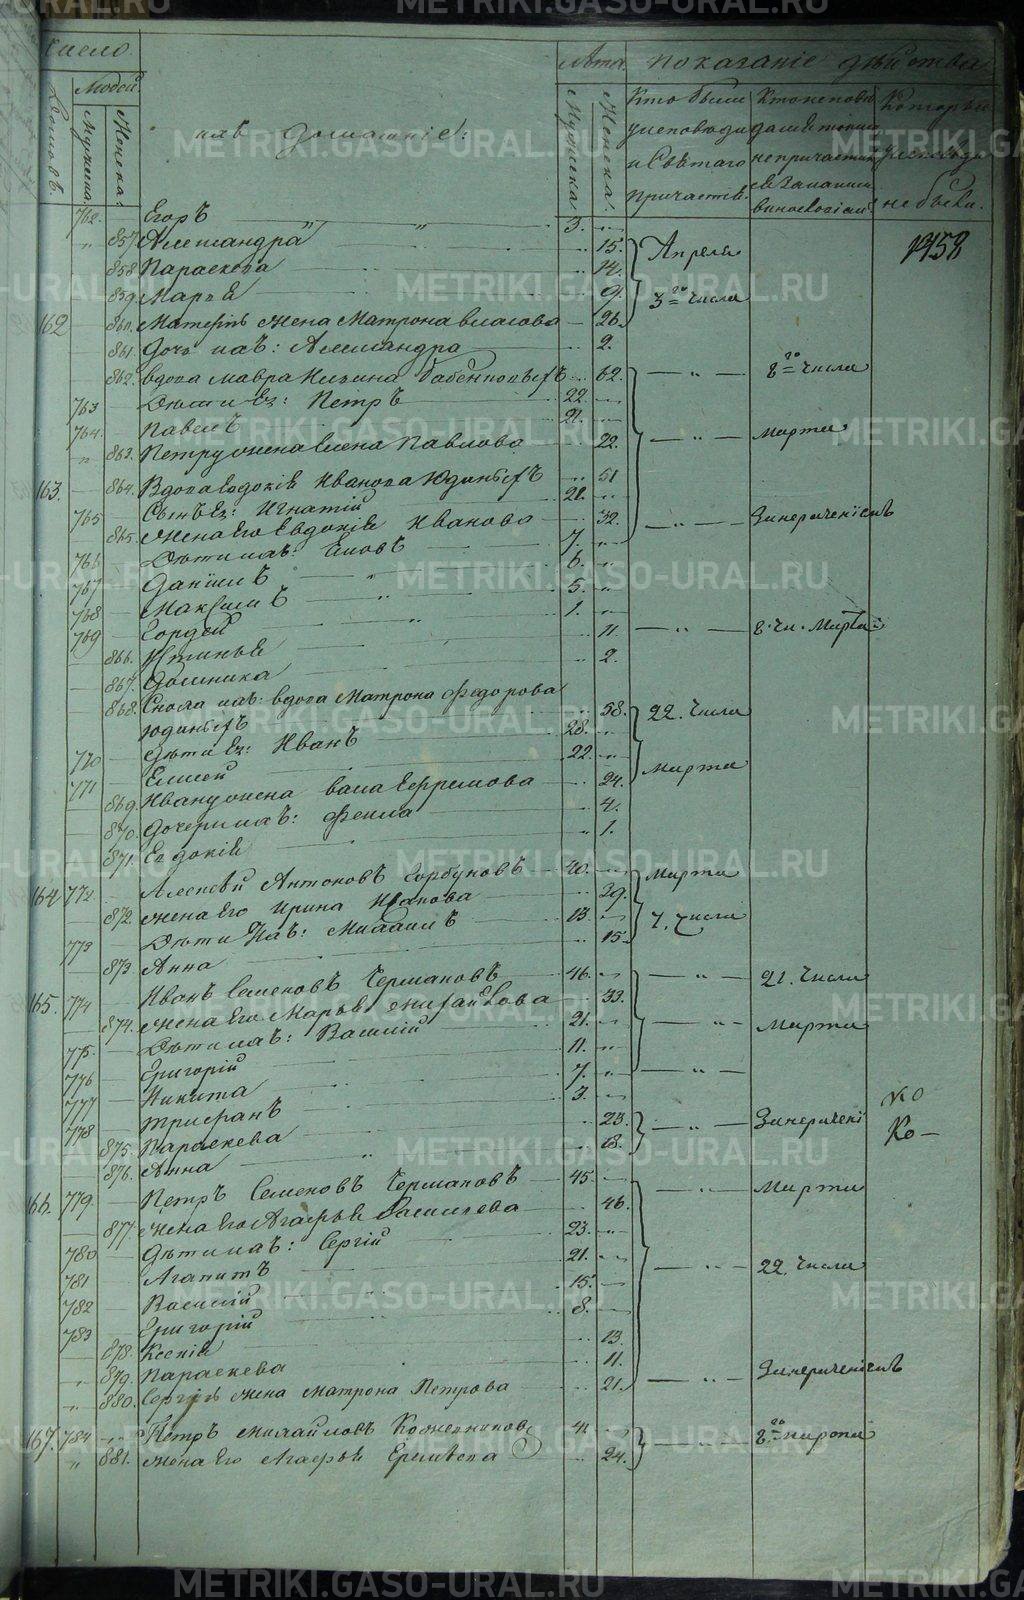 число
Лѣта показаніе дѣйства
Людей
Домовъ.
Мужеска.
Женска.
ихъ домашніе:
Мужеска.
Женска.
Кто были
у исповеди
и Святаго
причастія.
Кто исповѣ
дался токмо
не причастил
и за каким
винословіемъ
Которые
у исповеди
не были.
762. Егоръ 3.
857. Александра 15.
858. Параскева 14.
859. Марья 9.
Апреля
3го числа
1458
162 860. жена Матрона власова 26.
861. дочь ихъ: Александра 2.
862. вдова мавра 62.
8го числа
763 Дѣти Ея: Петръ 22.
764. Павелъ 21.
863. Петру жена Елена Павлова 22.
марта
163. 864. Вдова Евдокія Иванова Юдиныхъ 51
765 Сынъ Ея: Игнатій 28.
865. жена Его Евдокія Иванова 32.
766 Дѣти ихъ: Іаковъ 7.
767 Даніилъ 6.
768 Максимъ 5.
769 Гордей 1.
866. Устинья 11
8. чи. Марта
867. Домника 2.
868. Сноха ихъ: вдова Матрона Федорова
Юдиныхъ 58.
22. числа
770 Дѣти Ея: Иванъ 28.
771 Елисей 22.
869. Ивану жена васа Ефремова 24.
марта
870. Дочери ихъ: Фекла 4.
871. Евдокія 1.
164 772 Алексѣй Антоновъ Горбуновъ 40.
Марта
872. жена Его Ирина Иванова 39.
773 Дѣти Ихъ: Михаилъ 13
7. числа
873. Анна 15
165. 774 Иванъ Семеновъ Чермаковъ 46.
21. числа
874. жена Его Марья Михайлова 33.
775. Дѣти ихъ: Василій 21.
Марта
776 Григорій 11.
777 Никита 7.
778 Трифанъ 3.
875. Параскева 23.
876. Анна 13.
Ко
Ко
166. 779. Петръ Семеновъ Чермаковъ 45.
Марта
877. жена Его Агафья Васильева 46.
780 Дѣти ихъ: Сергій 23.
781 Агапитъ 21.
22. числа
782 Василій 15.
783 Григорій 8.
878. Ксенія 13.
879. Параскева 11.
880. Сергія жена Матрона Петрова 21.
167. 784 Петръ михайловъ Кожевниковъ
881. жена Его Агафья 24.
8го марта
METRIKI.GASO-URAL.RU